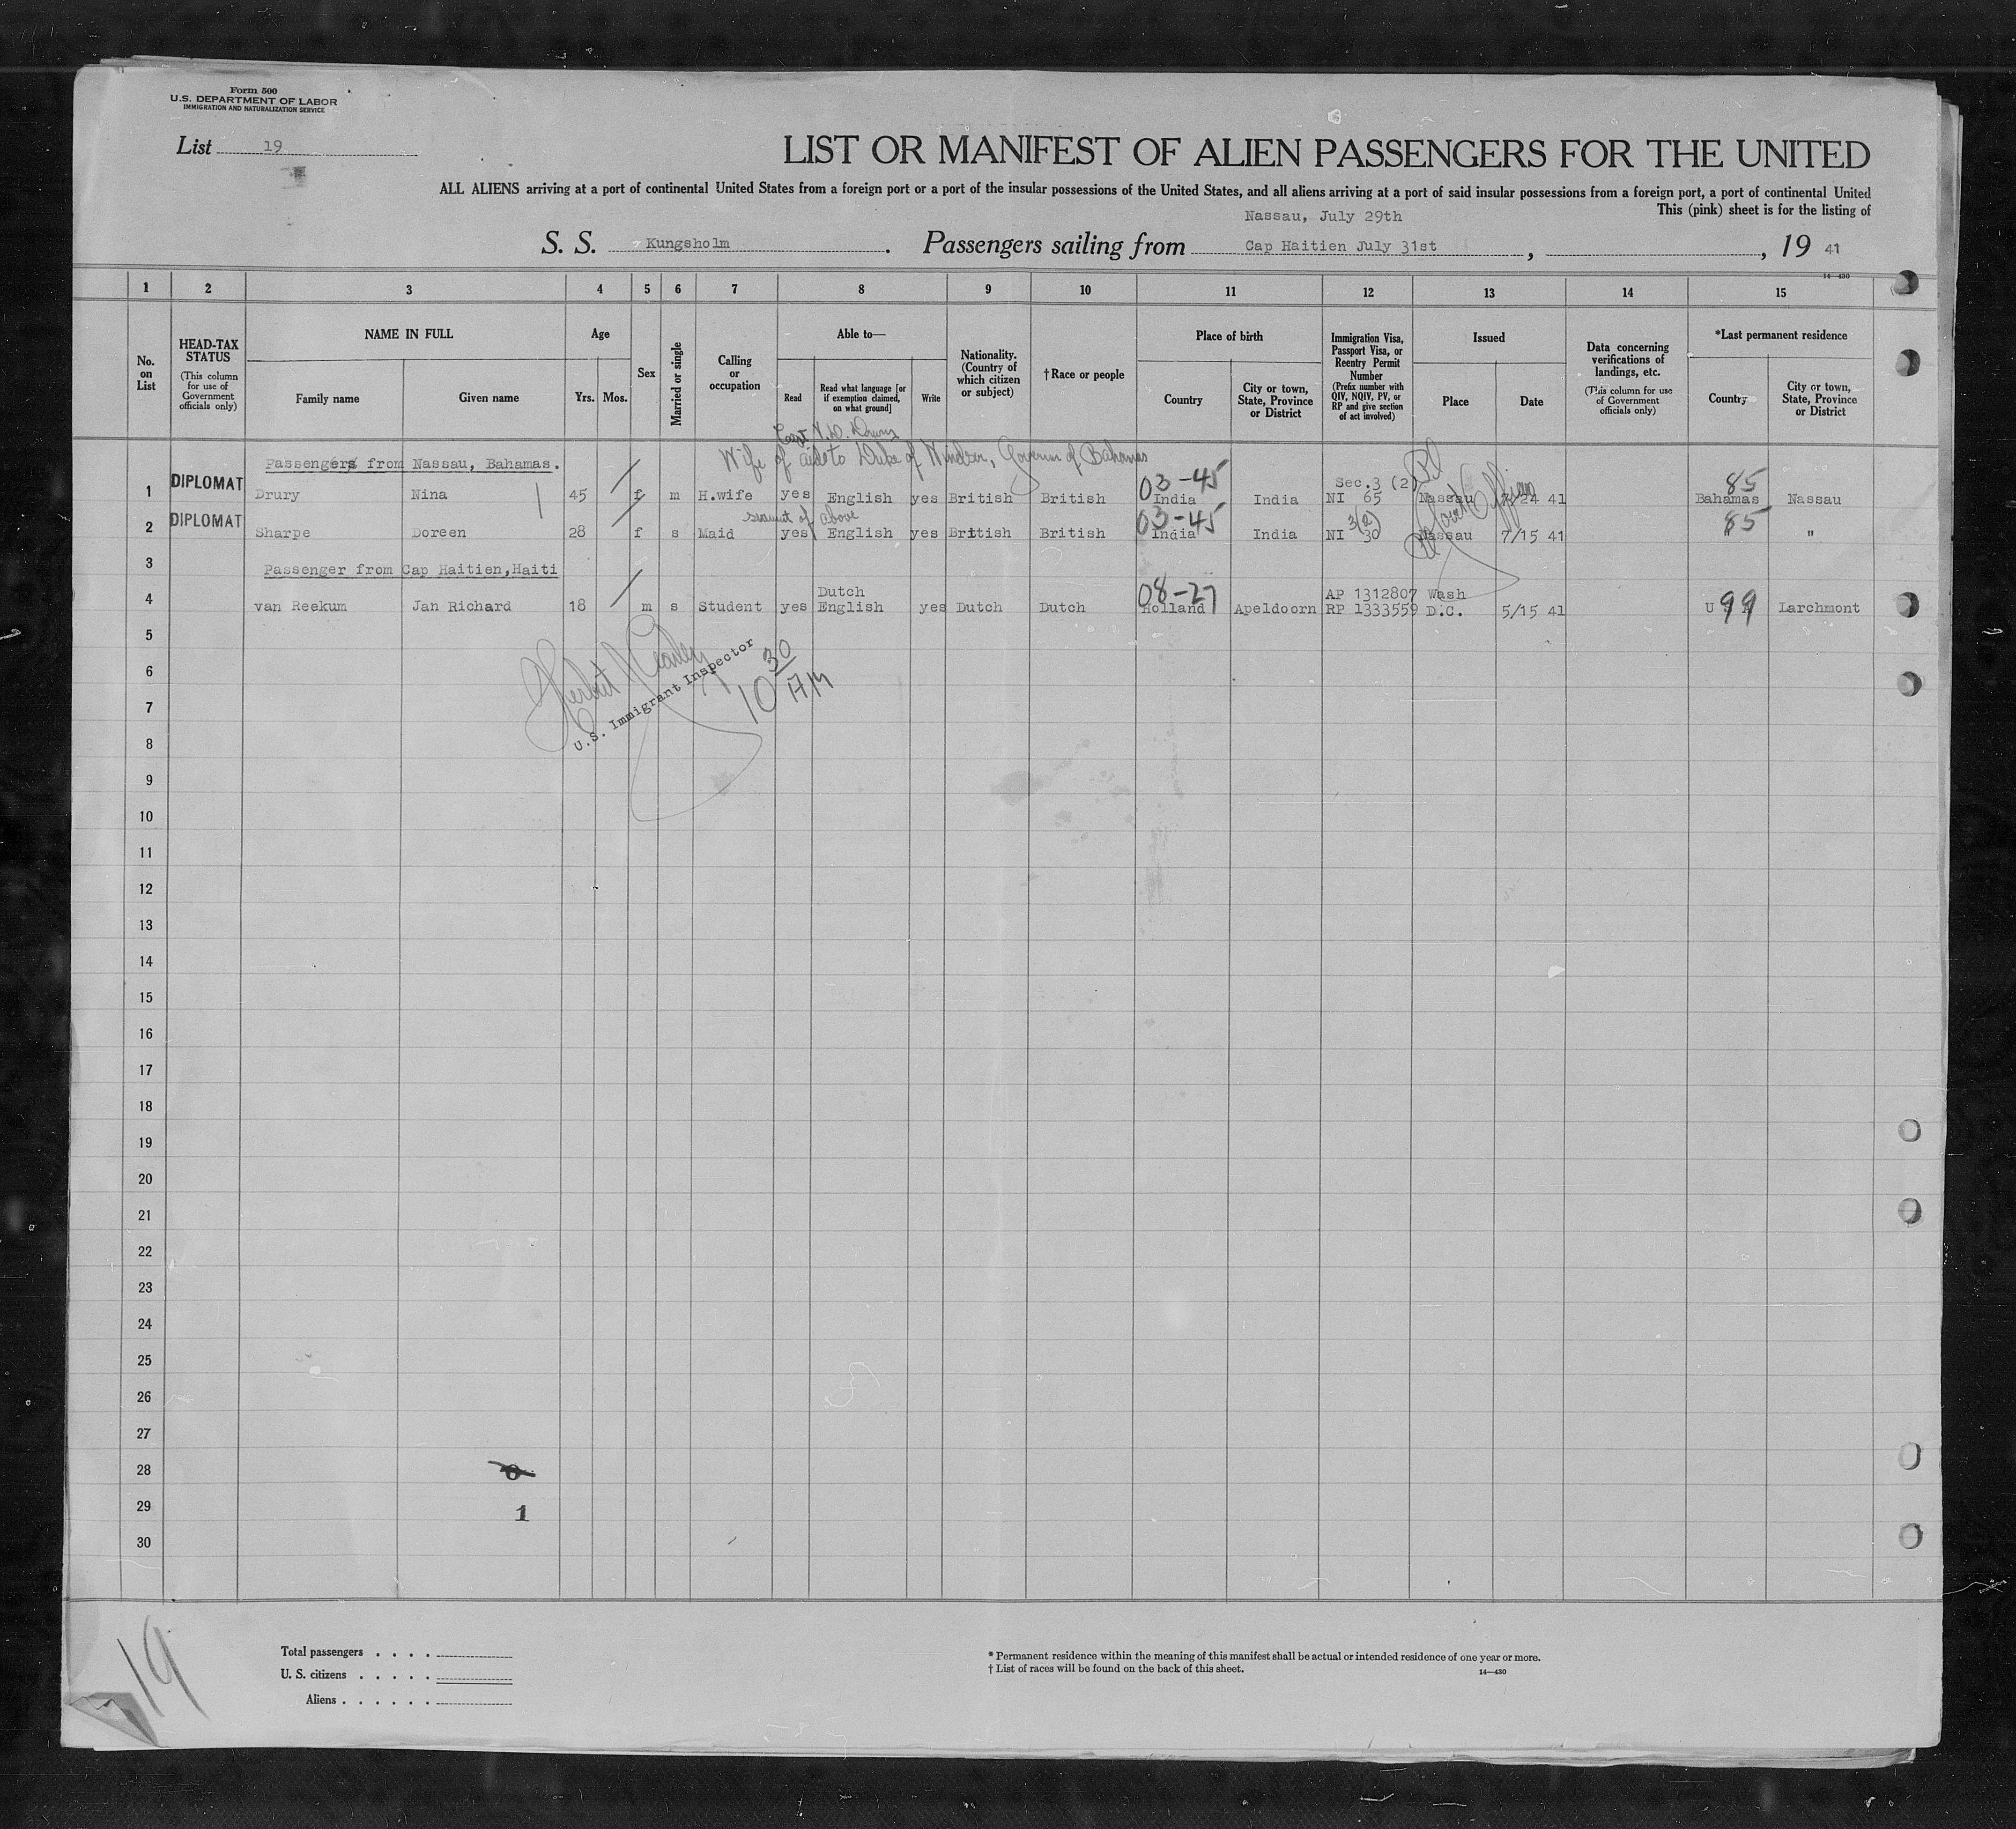 Form 500
U.S. DEPARTMENT OF LABOR
IMMIGRATION AND NATURALIZATION SERVICE
List 19
LIST OR MANIFEST OF ALIEN PASSENGERS FOR THE UNITED
ALL ALIENS arriving at a port of continental United States from a foreign port or a port of the insular possessions of the United States, and all aliens arriving at a port of said insular possessions from a foreign port, a port of continental United
This (pink) sheet is for the listing of
Nassau, July 29th
S. S. Kungsholm. Passengers sailing from Cap Haitien July 31st, , 19 41
14-430
1 2 3 4 5 6 7 8 9 10 11 12 13 14 15
No. on List
HEAD-TAX STATUS (This column for use of Government officials only)
NAME IN FULL
Family name Given name
Age
Yrs. Mos.
Sex
Married or single
Calling or occupation
Able to—
Read
Read what language [or if exemption claimed, on what ground]
Write
Nationality. (Country of which citizen or subject)
†Race or people
Place of birth
Country
City or town, State, Province or District
Immigration Visa, Passport Visa, or Reentry Permit Number (Prefix number with QIV, NQIV, PV, or RP and give section of act involved)
Issued
Place Date
Data concerning verifications of landings, etc. (This column for use of Government officials only)
*Last permanent residence
Country
City or town, State, Province or District
Passengers from Nassau, Bahamas.
Wife of aide to Duke of Windsor, Governor of Bahamas
03-45 Sec.3 (2) 85
1 DIPLOMAT Drury Nina 45 f m H.wife yes English yes British British India India NI 65 Nassau 7/24 41 Bahamas Nassau
servant of above
03-45 3(2) 85
2 DIPLOMAT Sharpe Doreen 28 f s Maid yes English yes British British India India NI 30 Nassau 7/15 41 " "
3 Passenger from Cap Haitien, Haiti
Dutch 08-27 AP 1312807 Wash
4 van Reekum Jan Richard 18 m s Student yes English yes Dutch Dutch Holland Apeldoorn RP 1333559 D.C. 5/15 41 U 99 Larchmont
5
6
U.S. Immigrant Inspector
10 30 AM
7
8
9
10
11
12
13
14
15
16
17
18
19
20
21
22
23
24
25
26
27
28
0
29
1
30
19
Total passengers . . . .
U. S. citizens . . . . .
Aliens . . . . . .
* Permanent residence within the meaning of this manifest shall be actual or intended residence of one year or more.
† List of races will be found on the back of this sheet.
14—430